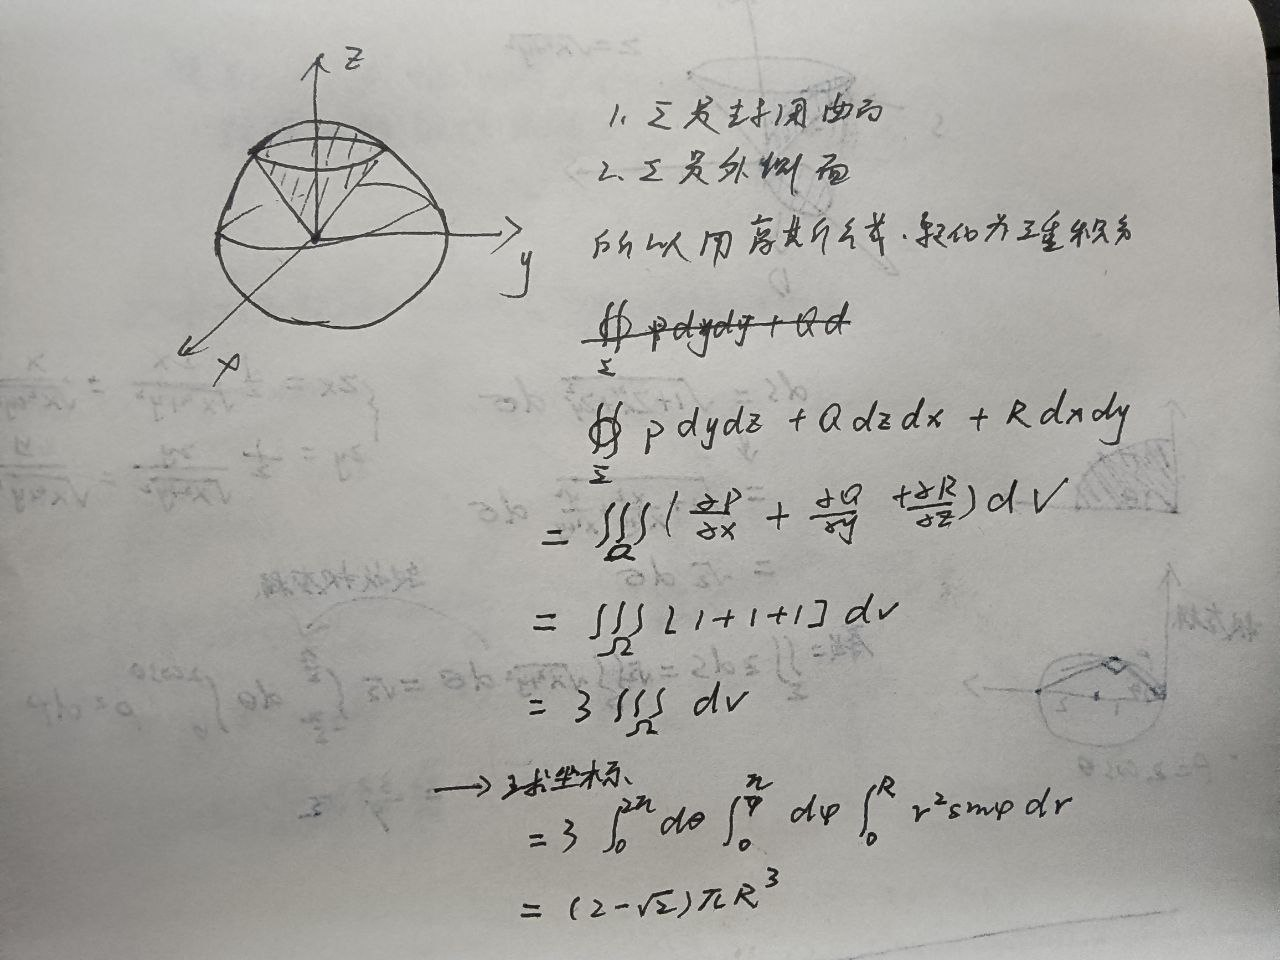 z
y
x
1. Σ是封闭曲面
2. Σ是外侧面
所以用高斯公式.转化为三重积分
∯_Σ P dydz + Q dzdx + R dxdy
= ∭_Ω (∂P/∂x + ∂Q/∂y + ∂R/∂z) dV
= ∭_Ω [1+1+1] dv
= 3 ∭_Ω dv
→ 球坐标
= 3 ∫_0^{2π} dθ ∫_0^{π/4} dφ ∫_0^R r² sinφ dr
= (2-√2)πR³